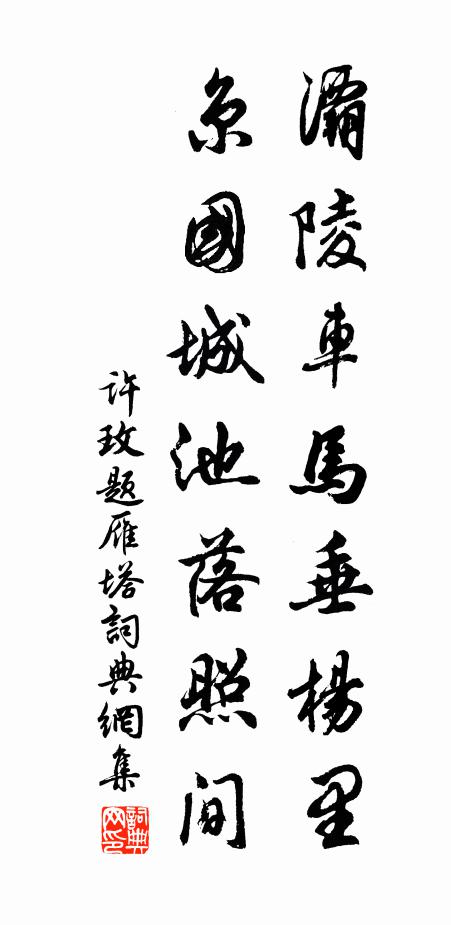 灞陵車馬垂楊里
京國城池落照間
许玫题雁塔詞典網集
詞典网印